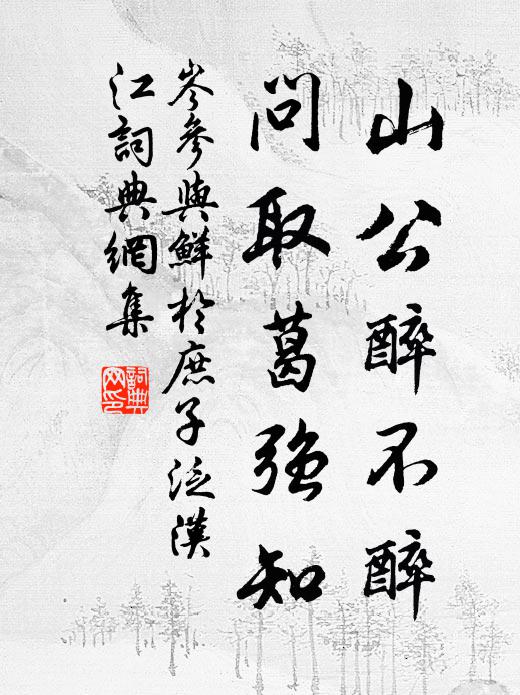 山公醉不醉
問取葛強知
岑參與鮮於庶子泛漢
江詞典網集
詞典
网印